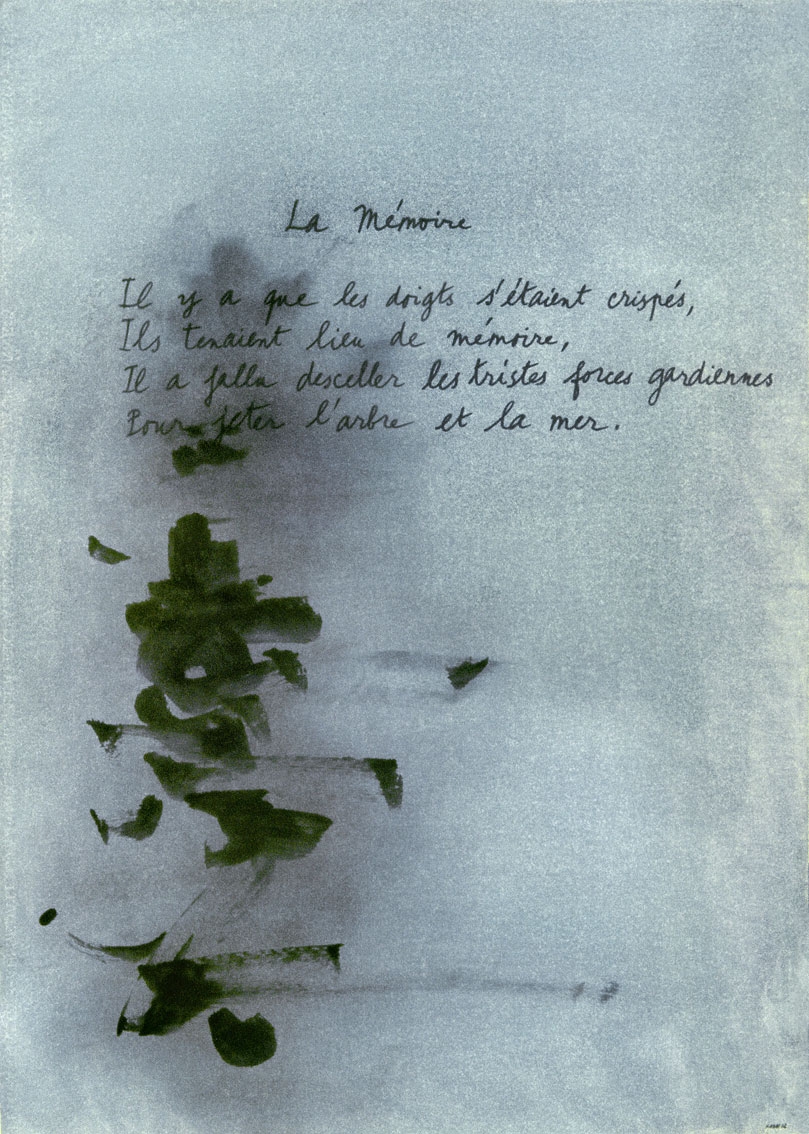 La Mémoire
Il y a que les doigts s'étaient crispés,
Ils tenaient lieu de mémoire,
Il a fallu desceller les tristes forces gardiennes
Pour jeter l'arbre et la mer.